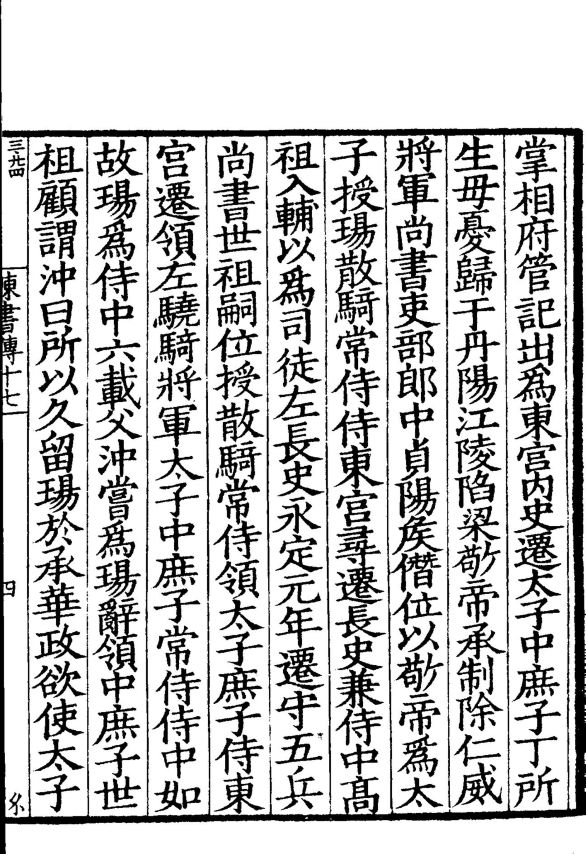 掌相府管記出爲東宮内史遷太子中庶子丁所
生毋憂歸于丹陽江陵陷梁敬帝承制除仁威
將軍尚書吏部郎中貞陽矦僭位以敬帝爲太
子授瑒散騎常侍侍東宮尋遷長史兼侍中髙
祖入輔以爲司徒左長史永定元年遷守五兵
尚書世祖嗣位授散騎常侍領太子庶子侍東
宮遷領左驍騎將軍太子中庶子常侍侍中如
故瑒爲侍中六載父沖嘗爲瑒辭領中庶子世
祖顧謂沖曰所以久留瑒於承華政欲使太子
陳書傳十七
四